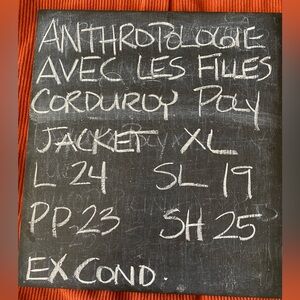 ANTHROPOLOGIE
AVEC LES FILLES
CORDUROY POLY
JACKET XL
L 24 SL 19
PP-23 SH 25
EX COND.